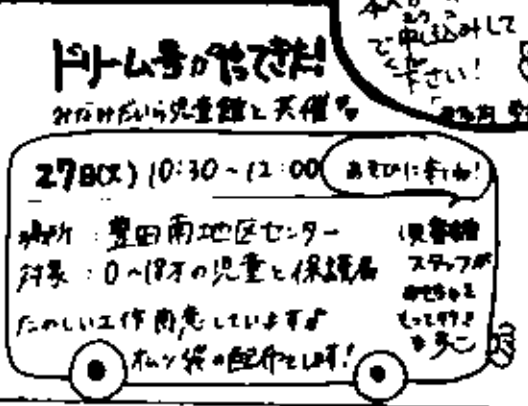 で申し込みして
下さい!
ドリーム号がやってきた!
みなみだいら児童館と共催
27日(火) 10:30~12:00
あそびに来てね!
場所:豊田南地区センター
対象:0~18才の児童と保護者
たのしい工作用意しています♪
オムツ袋の配布もします!
児童館
スタッフが
おもちゃを
もって行くよ